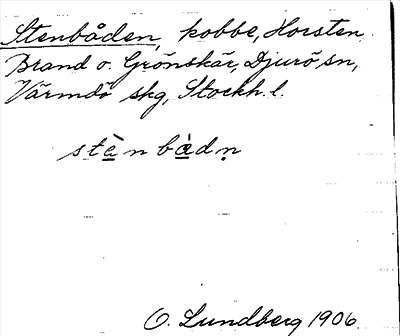 Stenbåden, kobbe, Horsten
Brand o. Grönskär, Djurö sn,
Värmdö skg, Stockh. l.
stànbàdṇ
O. Lundberg 1906